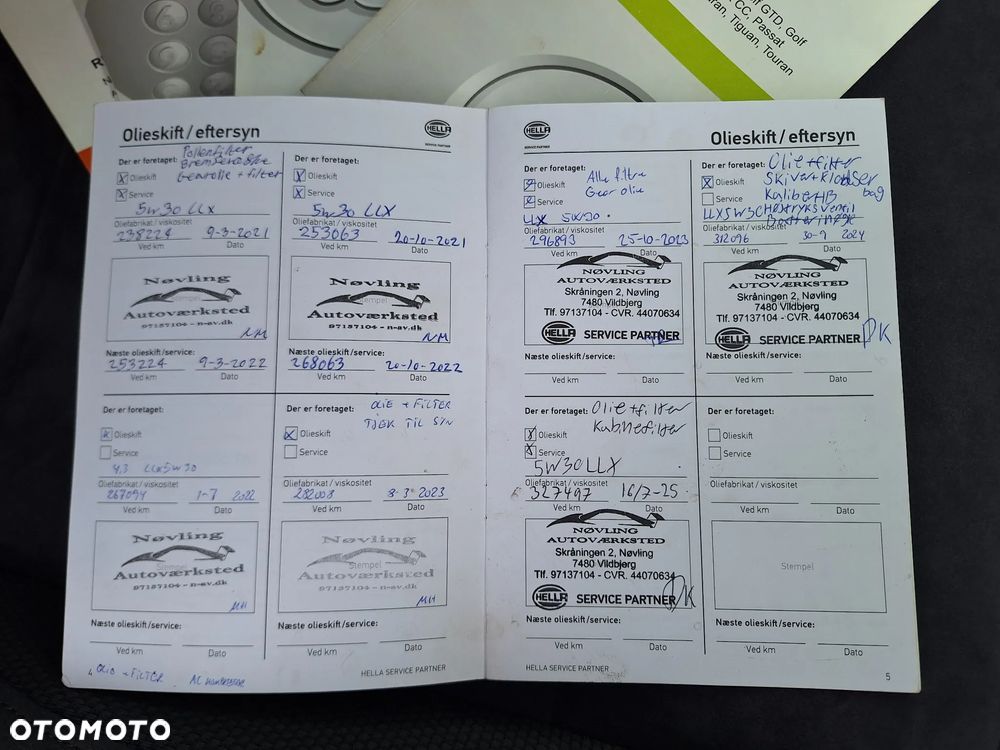 lf GTD, Golf
CC, Passat
Tiguan, Touran
Olieskift / eftersyn
HELLA
SERVICE PARTNER
Der er foretaget:
Pollenfilter
Bremsevæske
Gearolie + filter
Olieskift
Service
5w30 LLX
Oliefabrikat / viskositet
238224 9-3-2021
Ved km Dato
Nøvling
Stempel
Autoværksted
97137104 - n-av.dk
NM
Næste olieskift/service:
253224 9-3-2022
Ved km Dato
Der er foretaget:
Olieskift
Service
5w30 LLX
Oliefabrikat / viskositet
253063 20-10-2021
Ved km Dato
Nøvling
Stempel
Autoværksted
97137104 - n-av.dk
NM
Næste olieskift/service:
268063 20-10-2022
Ved km Dato
Der er foretaget:
Olieskift
Service
4,3 LLX5w30
Oliefabrikat / viskositet
267094 1-7 2022
Ved km Dato
Nøvling
Stempel
Autoværksted
97137104 - n-av.dk
MH
Næste olieskift/service:
Ved km Dato
4
OLIE + FILTER
Der er foretaget:
OLIE + FILTER
TJEK TIL SYN
Olieskift
Service
Oliefabrikat / viskositet
282008 8-3-2023
Ved km Dato
Nøvling
Stempel
Autoværksted
97137104 - n-av.dk
MH
Næste olieskift/service:
Ved km Dato
HELLA SERVICE PARTNER
HELLA
SERVICE PARTNER
Olieskift / eftersyn
Der er foretaget:
Alle filtre
Gear olie
Olieskift
Service
LLX 5W30
Oliefabrikat / viskositet
296893 25-10-2023
Ved km Dato
NØVLING
AUTOVÆRKSTED
Skråningen 2, Nøvling
7480 Vildbjerg
Tlf. 97137104 - CVR. 44070634
HELLA SERVICE PARTNER
Næste olieskift/service:
Ved km Dato
Der er foretaget:
Olie+filter
Skiver+klodser
bag
Kaliber HB
Olieskift
Service
LLX5W30
Oliefabrikat / viskositet
312096 30-9 2024
Ved km Dato
NØVLING
AUTOVÆRKSTED
Skråningen 2, Nøvling
7480 Vildbjerg
Tlf. 97137104 - CVR. 44070634
HELLA SERVICE PARTNER
DK
Næste olieskift/service:
Ved km Dato
Der er foretaget:
Olie+filter
Kabinefilter
Olieskift
Service
5W30LLX
Oliefabrikat / viskositet
327497 16/7-25
Ved km Dato
NØVLING
AUTOVÆRKSTED
Skråningen 2, Nøvling
7480 Vildbjerg
Tlf. 97137104 - CVR. 44070634
HELLA SERVICE PARTNER
DK
Næste olieskift/service:
Ved km Dato
HELLA SERVICE PARTNER
Der er foretaget:
Olieskift
Service
Oliefabrikat / viskositet
Ved km Dato
Stempel
Næste olieskift/service:
Ved km Dato
5
OTOMOTO